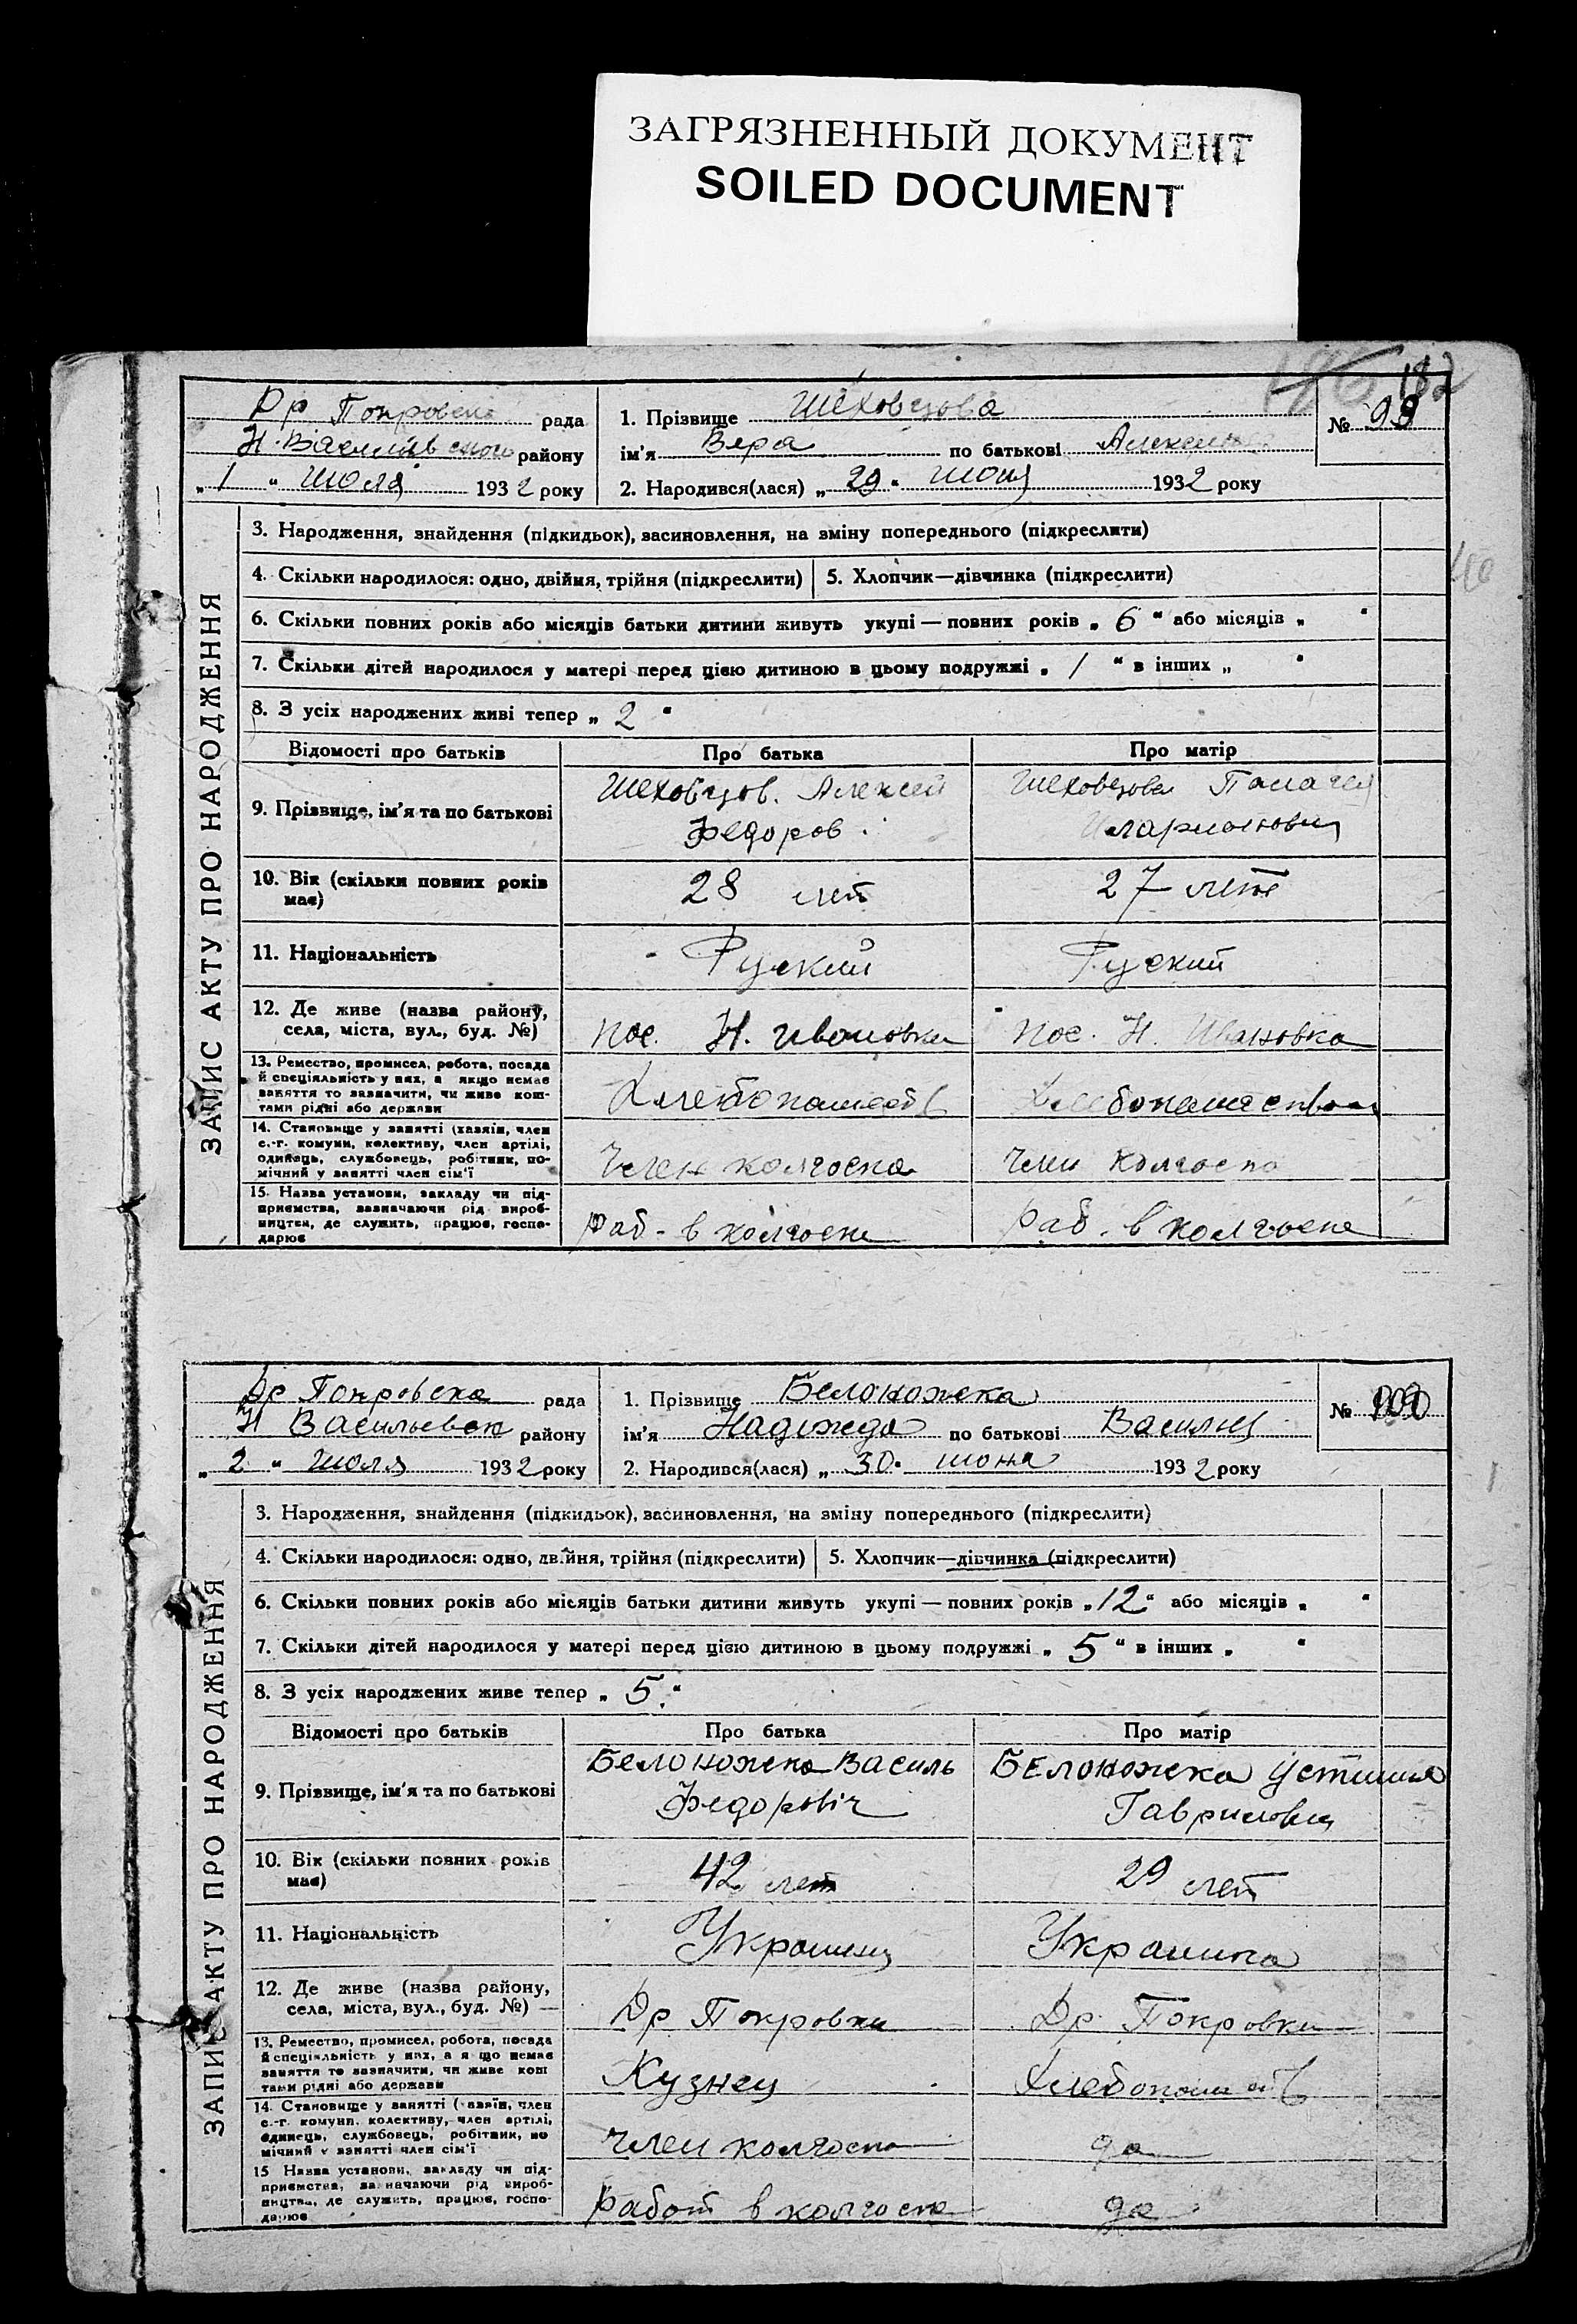 ЗАГРЯЗНЕННЫЙ ДОКУМЕНТ
SOILED DOCUMENT
182
Др Покровска рада
Н. Васильевского району
„ 1 “ июля 1932 року
1. Прізвище Шеховцова
ім'я Вера по батькові Алексеевна
2. Народився(лася) „ 29 “ июня 1932 року
№ 99
ЗАПИС АКТУ ПРО НАРОДЖЕННЯ
3. Народження, знайдення (підкидьок), засиновлення, на зміну попереднього (підкреслити)
4. Скільки народилося: одно, двійня, трійня (підкреслити) 5. Хлопчик—дівчинка (підкреслити)
6. Скільки повних років або місяців батьки дитини живуть укупі — повних років „ 6 “ або місяців „ “
7. Скільки дітей народилося у матері перед цією дитиною в цьому подружжі „ 1 “ в інших „ “
8. З усіх народжених живі тепер „ 2 “
Відомості про батьків Про батька Про матір
9. Прізвище, ім'я та по батькові
Шеховцов. Алексей
Федоров.
Шеховцова
Иларионовн
10. Вік (скільки повних років має)
28 лет
27 лет
11. Національність
Руский
Руский
12. Де живе (назва району,
села, міста, вул., буд. №)
пос. Н. Ивановка
пос. Н. Ивановка
13. Ремество, промисел, робота, посада
й спеціяльність у них, а якщо немає
заняття то зазначити, чи живе кош-
тами рідні або держави
Хлебопашеств
Хлебопашество
14. Становище у занятті (хазяїн, член
с.-г. комуни, колективу, член артілі,
одинець, службовець, робітник, по-
мічний у занятті член сім'ї
Член колгоспа
Член колгоспа
15. Назва установи, закладу чи під-
приємства, зазначаючи рід вироб-
ництва, де служить, працює, госпо-
дарює
Раб - в колгоспе
Раб. в колгоспе
Др Покровска рада
Н Васильевск району
„ 2 “ июля 1932 року
1. Прізвище Белоножка
ім'я Надежда по батькові Васил
2. Народився(лася) „ 30 “ июня 1932 року
№ 100
ЗАПИС АКТУ ПРО НАРОДЖЕННЯ
3. Народження, знайдення (підкидьок), засиновлення, на зміну попереднього (підкреслити)
4. Скільки народилося: одно, двійня, трійня (підкреслити) 5. Хлопчик—дівчинка (підкреслити)
6. Скільки повних років або місяців батьки дитини живуть укупі — повних років „ 12 “ або місяців „ “
7. Скільки дітей народилося у матері перед цією дитиною в цьому подружжі „ 5 “ в інших „ “
8. З усіх народжених живе тепер „ 5 “
Відомості про батьків Про батька Про матір
9. Прізвище, ім'я та по батькові
Белоножка Василь
Федоровіч
Белоножка Устинья
Гавриловн
10. Вік (скільки повних років має)
42 лет
29 лет
11. Національність
Украинец
Украинка
12. Де живе (назва району,
села, міста, вул., буд. №)
Др Покровка
Др. Покровка
13. Ремество, промисел, робота, посада
й спеціяльність у них, а якщо немає
заняття то зазначити, чи живе кош
тами рідні або держави
Кузнец
Хлебопашеств
14. Становище у занятті (хазяїн, член
с.-г. комуни, колективу, член артілі,
одинець, службовець, робітник, по
мічний у занятті член сім'ї
член колгоспа
да
15 Назва установи, закладу чи під-
приємства, зазначаючи рід вироб-
ництва, де служить, працює, госпо-
дарює
Работ в колгоспе
да